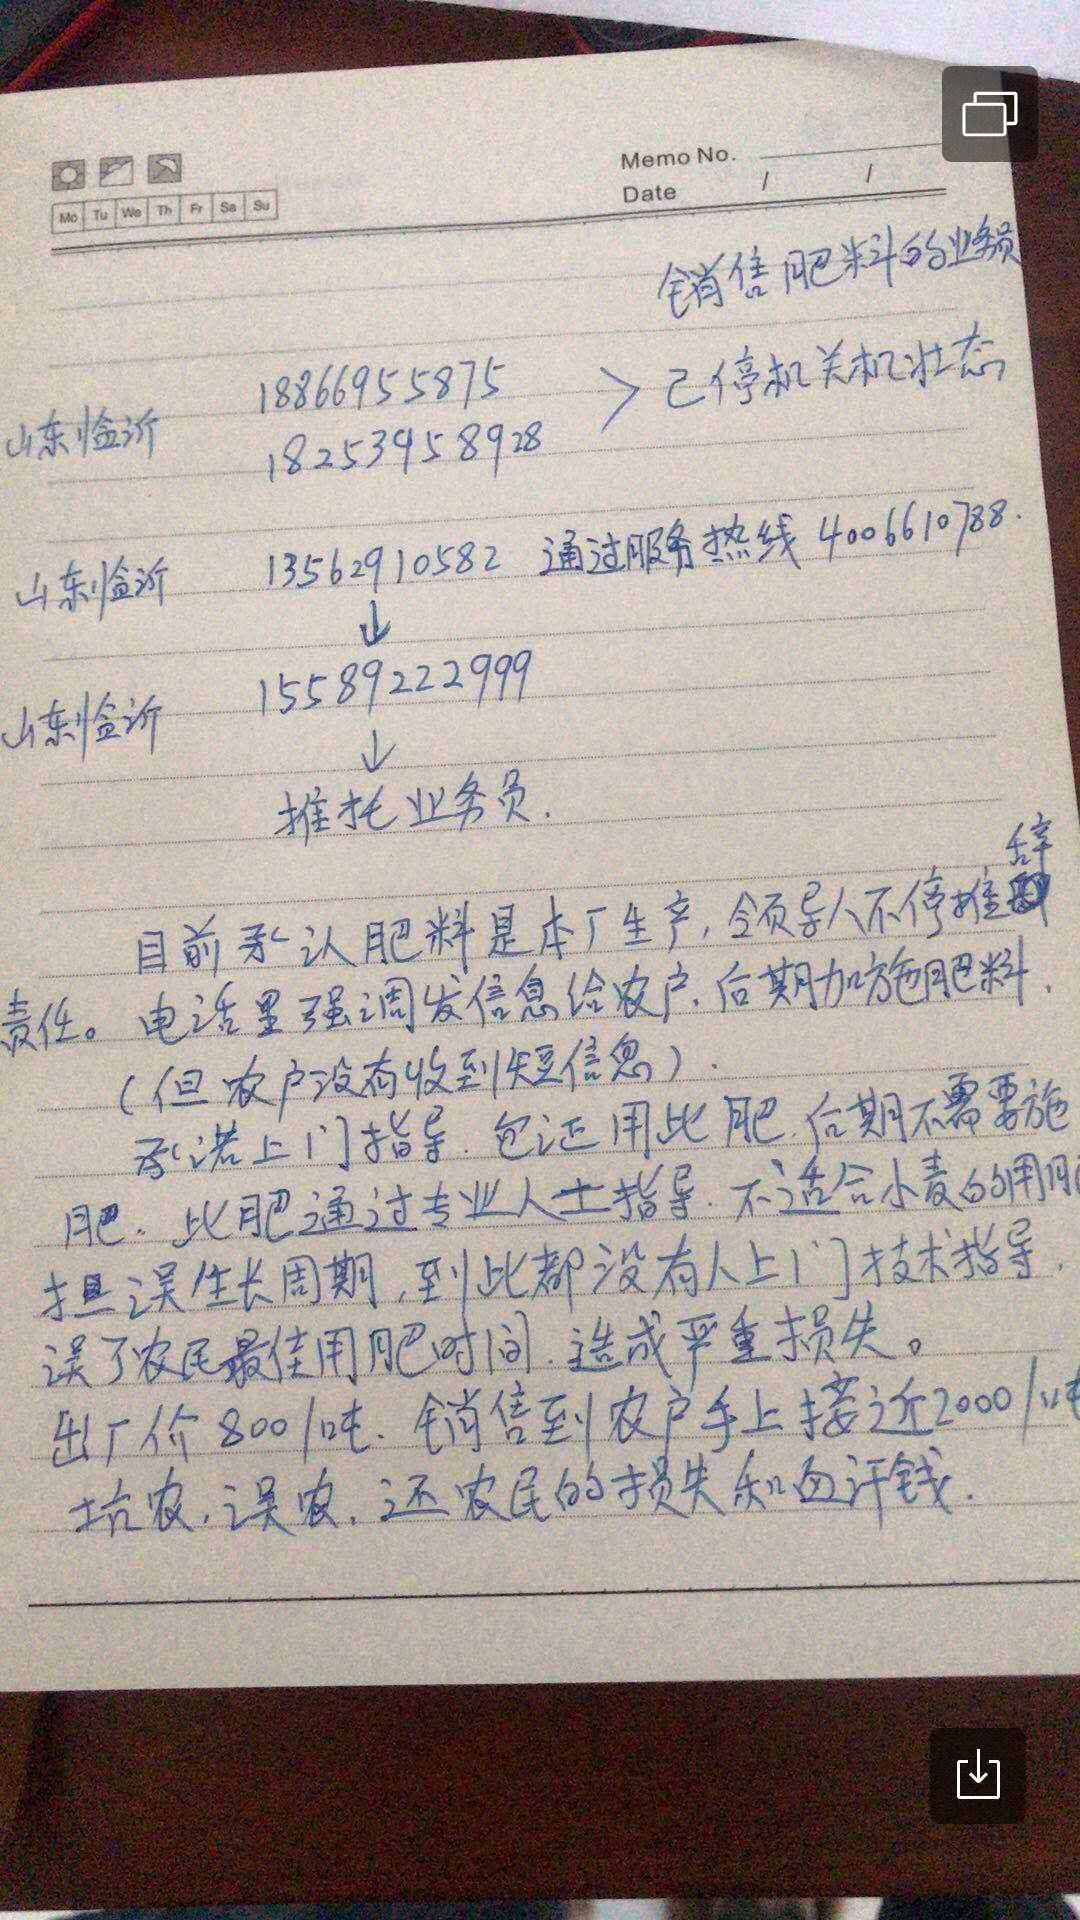 Memo No.
Date / /
Mo Tu We Th Fr Sa Su
销售肥料的业务员
18866955875
山东临沂 > 已停机关机状态
18253958928
山东临沂 13562910582 通过服务热线 4006610788.
↓
山东临沂 15589222999
↓
推托业务员.
辞
目前承认肥料是本厂生产,领导人不停推
责任。电话里强调发信息给农户,后期加施肥料.
(但农户没有收到短信息).
承诺上门指导.包证用此肥.后期不需要施
肥.此肥通过专业人士指导.不适合小麦的用肥
担误生长周期,到此都没有人上门技术指导.
误了农民最佳用肥时间.造成严重损失。
出厂价800/吨.销售到农户手上接近2000/吨
坑农.误农.还农民的损失和血汗钱.